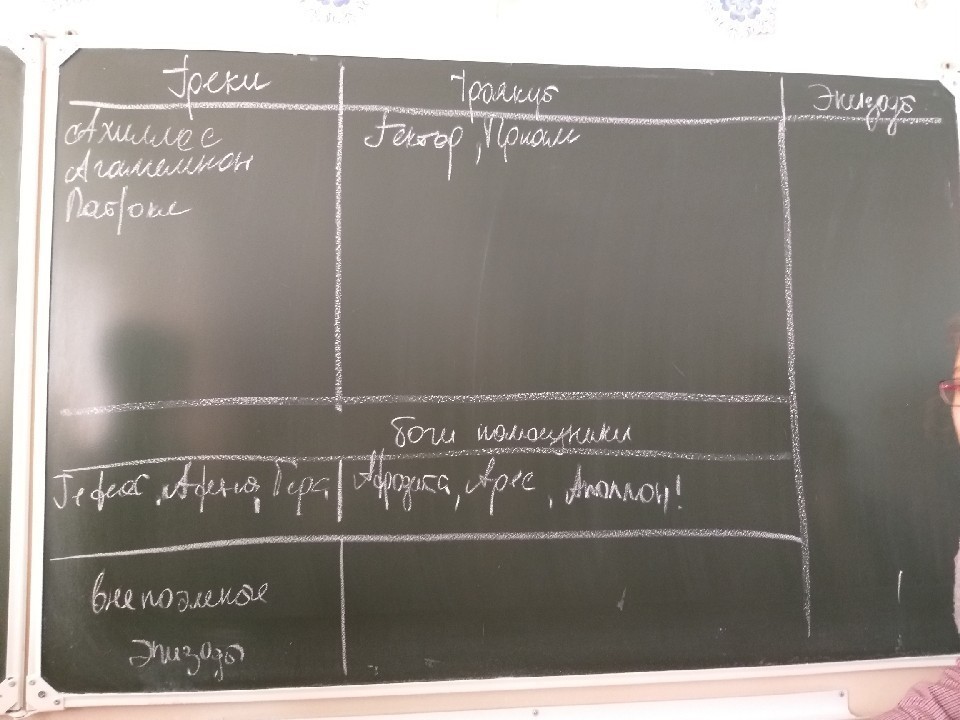 Греки
Троянцы
Эпизоды
Ахиллес
Гектор, Приам
Агамемнон
Патрокл
Боги помощники
Гефест, Афина, Гера
Афродита, Арес, Аполлон!
Внепоэмные
эпизоды